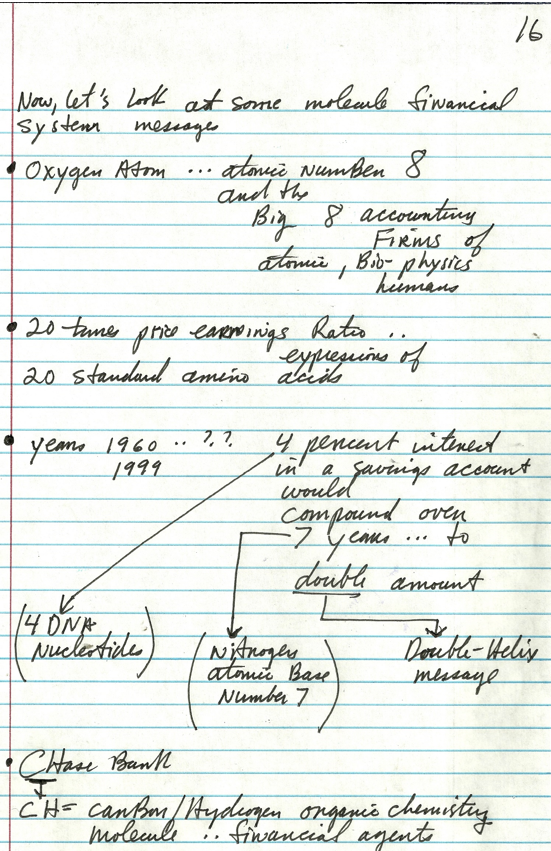 16
Now, let's look at some molecule financial
system messages
• Oxygen Atom ... atomic Number 8
and the
Big 8 accounting
Firms of
atomic, Bio-physics
humans
• 20 times price earnings Ratio ..
expressions of
20 standard amino acids
• years 1960 .. ?.?. 4 percent interest
1999 in a savings account
would
compound over
7 years ... to
double amount
(4 DNA Nucleotides)
(Nitrogen atomic Base Number 7)
Double-Helix message
• CHase Bank
CH = carbon/Hydrogen organic chemistry
molecule .. financial agents